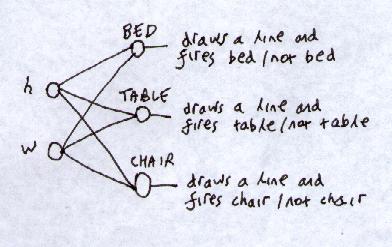 BED
draws a line and
fires bed/not bed
h
TABLE
draws a line and
fires table/not table
W
CHAIR
draws a line and
fires chair/not chair